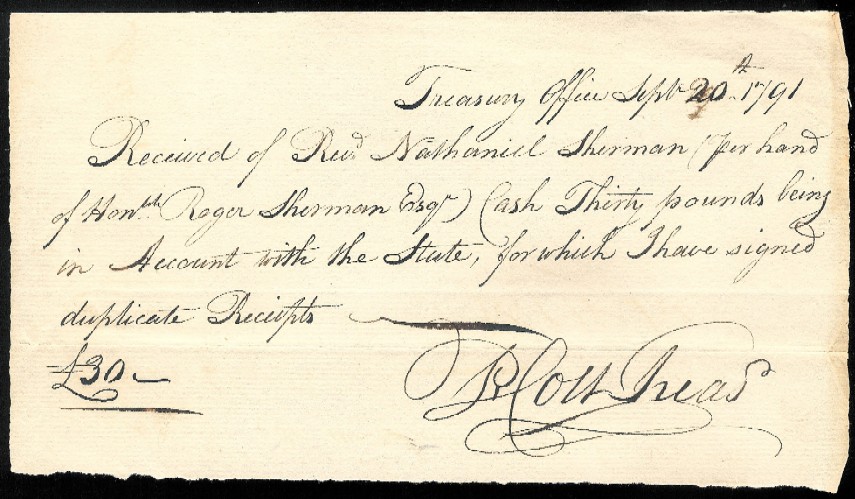 Treasury Office Septr 20th 1791
Received of Revd Nathaniel Sherman (per hand
of Honble Roger Sherman Esqr) Cash Thirty pounds being
in Account with the State, for which I have signed
duplicate Receipts
£30 –
P Colt Treasr